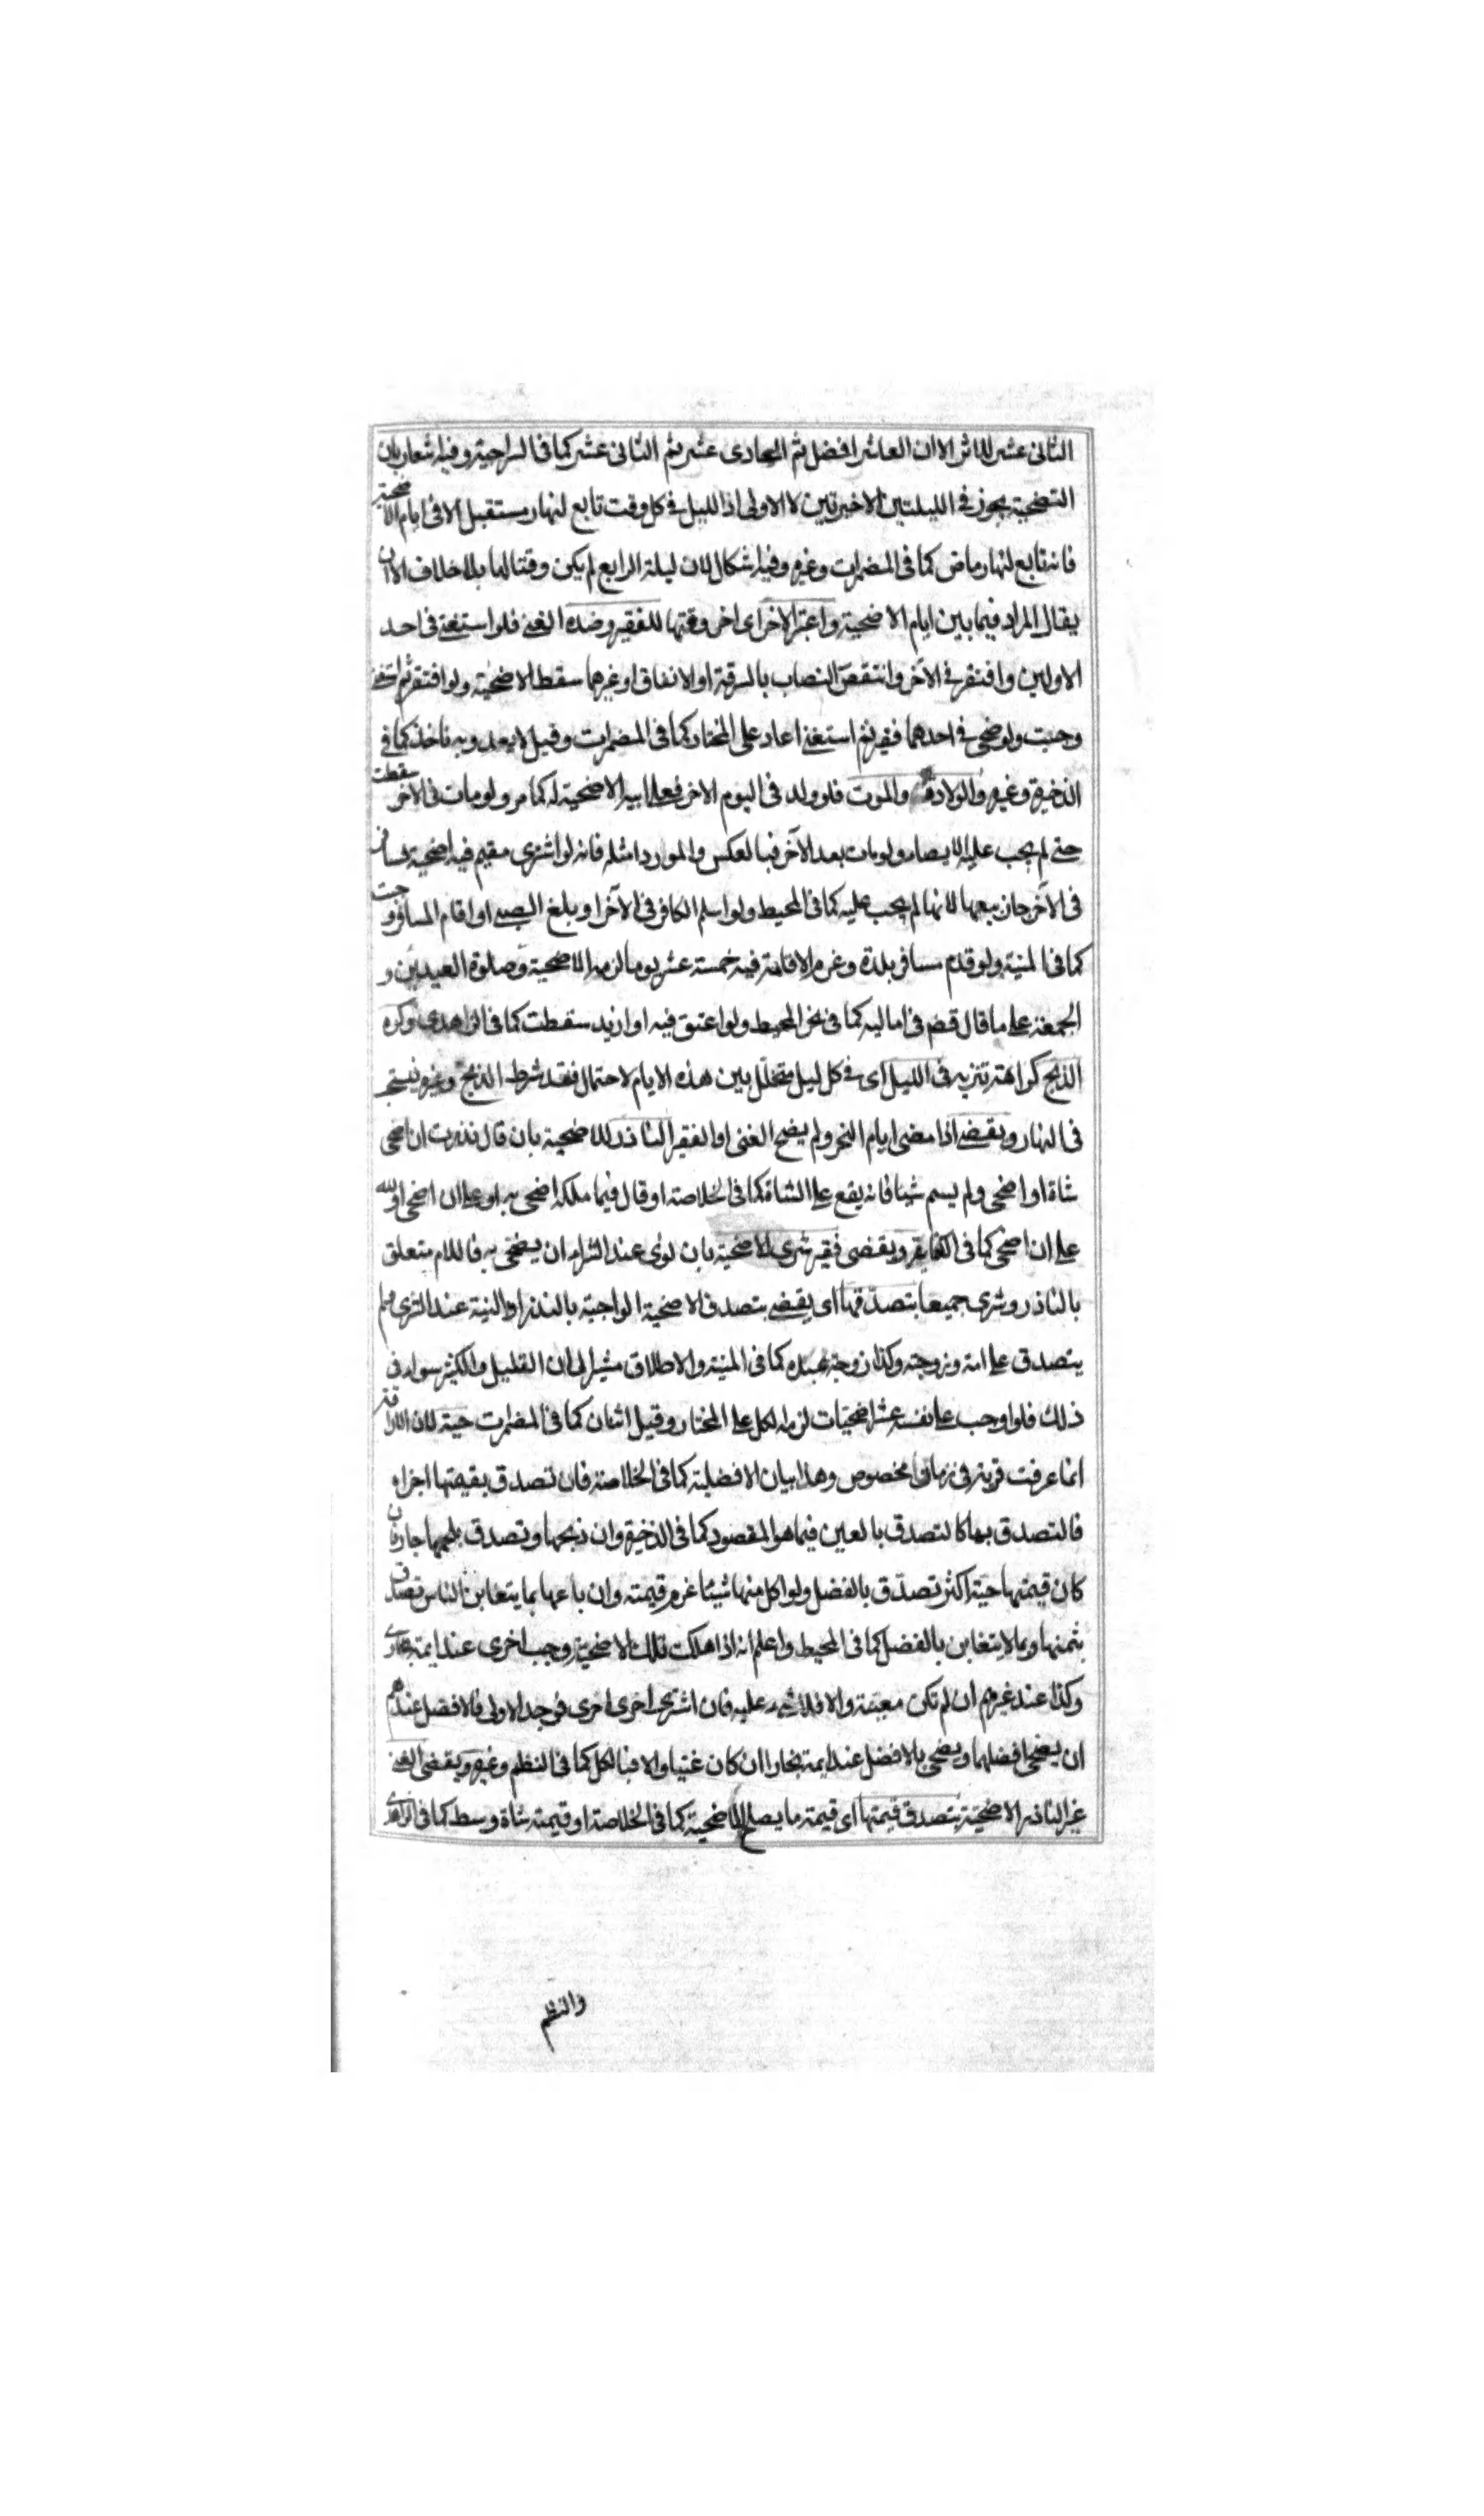 الثانى عشر للاثر الا ان العاشر افضل ثم الحادى عشر ثم الثانى عشر كما فى السراجية وفيه اشعار بان
التضحية يجوز فى الليلتين الاخيرتين لا الاولى اذ الليل فى كل وقت تابع لنهار مستقبل الا فى ايام الاضحية
فانه تابع لنهار ماض كما فى المضمرات وغيره وفيه اشكال لان ليلة الرابع لم يكن وقتا لها بلا خلاف الا ان
يقال المراد فيما بين ايام الاضحية واعتبر الاخر اى اخر وقتها للفقير وضده الغنى فلو استغنى فى احد
الاولين وافتقر فى الآخر وانتقص النصاب بالسرقة او الانفاق او غيرهما سقط الاضحية ولو افتقر ثم استغنى
وجبت ولو ضحى فى احدهما فقير ثم استغنى اعاد على المختار كما فى المضمرات وقيل لا يعد وبه ناخذ كما فى
الذخيرة وغيره والولادة والموت فلو ولد فى اليوم الاخر فعلى ابيه الاضحية له كما مر ولو مات فى الآخر سقطت
حتى لم يجب عليه الايصاء ولو مات بعد الآخر فبالعكس والمورد مثله فانه لو اشترى مقيم فيه اضحية يسافر
فى الآخر جاز بيعها لانها لم يجب عليه كما فى المحيط ولو اسلم الكافر فى الآخر او بلغ الصبى او اقام المسافر وجبت
كما فى المنية ولو قدم مسافر بلدة وعزم الاقامة فيه خمسة عشر يوما لزمه الاضحية وصلوة العيدين و
الجمعة على ما قال قض فى اماليه كما فى نحر المحيط ولو اعتق فيه او ارتد سقطت كما فى الزاهدى وكره
الذبح كراهة تنزيه فى الليل اى فى كل ليل متخلل بين هذه الايام لاحتمال فقد شرط الذبح وغيره فيستحب
فى النهار ويقضى اذا مضى ايام النحر ولم يضح الغنى او الفقير الناذر للاضحية بان قال نذرت ان اضحى
شاة او اضحى ولم يسم شيئا فانه يقع على الشاة كما فى الخلاصة او قال فيما ملكه اضحى به او على ان اضحى او لله
على ان اضحى كما فى الكفاية ويقضى فقير شرى للاضحية بان نوى عند الشراء ان يضحى به فاللام متعلق
بالناذر وشرى جميعا بتصدقها اى يقضى بتصدق الاضحية الواجبة بالنذر او النية عند الشرى فلم
يتصدق على امة وزوجته وكذا زوجة عبده كما فى المنية والاطلاق مشير الى ان القليل والكثير سواء فى
ذلك فلو اوجب على نفسه عشر اضحيات لزمه الكل على المختار وقيل اثنان كما فى المضمرات حية لان الاراقة
انما عرفت قربة فى زمان مخصوص وهذا بيان الافضلية كما فى الخلاصة فان تصدق بقيمتها اجزاه
فالتصدق بها كالتصدق بالعين فيما هو المقصود كما فى الذخيرة وان ذبحها وتصدق بلحمها جاز فان
كان قيمتها حية اكثر تصدق بالفضل ولو اكل منها شيئا غرم قيمته وان باعها بما يتغابن الناس تصدق
بثمنها وبما لا يتغابن بالفضل كما فى المحيط واعلم انه اذا هلكت تلك الاضحية وجب اخرى عند ايمة بخارى
وكذا عند غيرهم ان لم تكن معينة والا فلا شىء عليه فان اشترى اخرى اخرى فوجد الاولى فالافضل عندهم
ان يضحى افضلهما ويضحى بالافضل عند ايمة بخارا ان كان غنيا والا فبالكل كما فى النظم وغيره ويقضى الغنى
غير الناذر الاضحية بتصدق قيمتها اى قيمة ما يصلح للاضحية كما فى الخلاصة او قيمة شاة وسط كما فى الزاهدى
والنظم